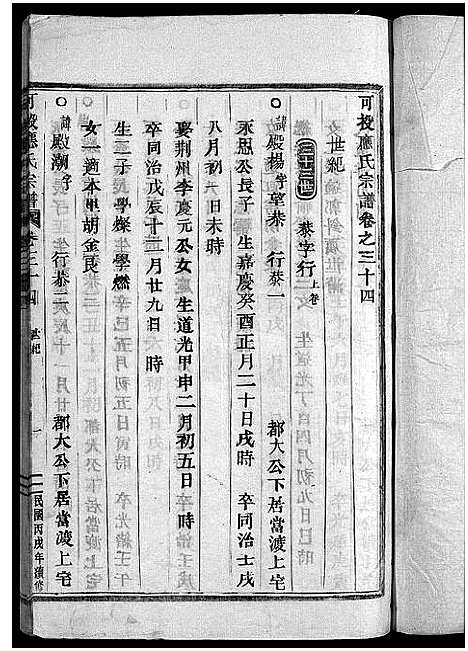 可投應氏宗譜卷之三十四
世紀
三十三世 恭字行 上卷
諱殿楊 字堂恭 行恭一 郡大公下居當渡上宅
永恩公長子 生嘉慶癸酉正月二十日戌時 卒同治壬戌
八月初六日未時
娶荆州李慶元公女 生道光甲申二月初五日 時
卒同治戊辰十二月廿九日 時
生二子 學燦 生學燃
女一適本甲胡金良
諱殿潮 字 行恭 郡大公下居當渡上宅
可投應氏宗譜 卷之三十四 世紀 一 民國丙戌年續修